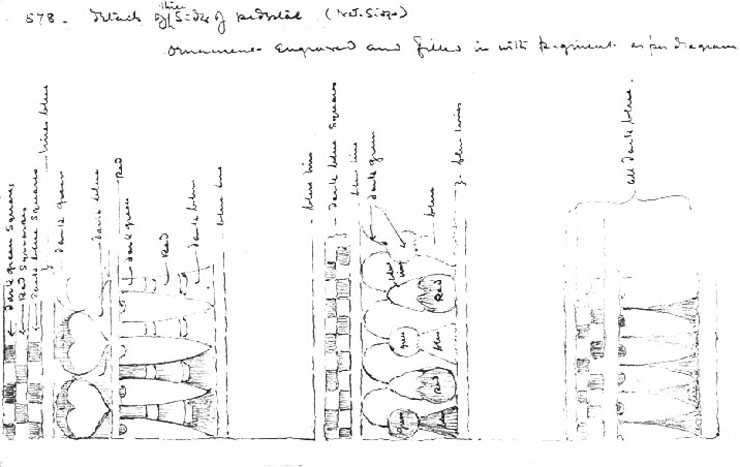 578. Details of three Sides of pedestal (Nat. Size)
Ornament Engraved and filled in with pigment as per diagram
dark green squares
Red squares
dark blue squares
lines blue
dark green
dark blue
Red
dark green
Red
dark blue
blue line
blue line
dark blue squares
blue line
dark green
blue
blue lines
all dark blue.
Red
green
blue
Red
green